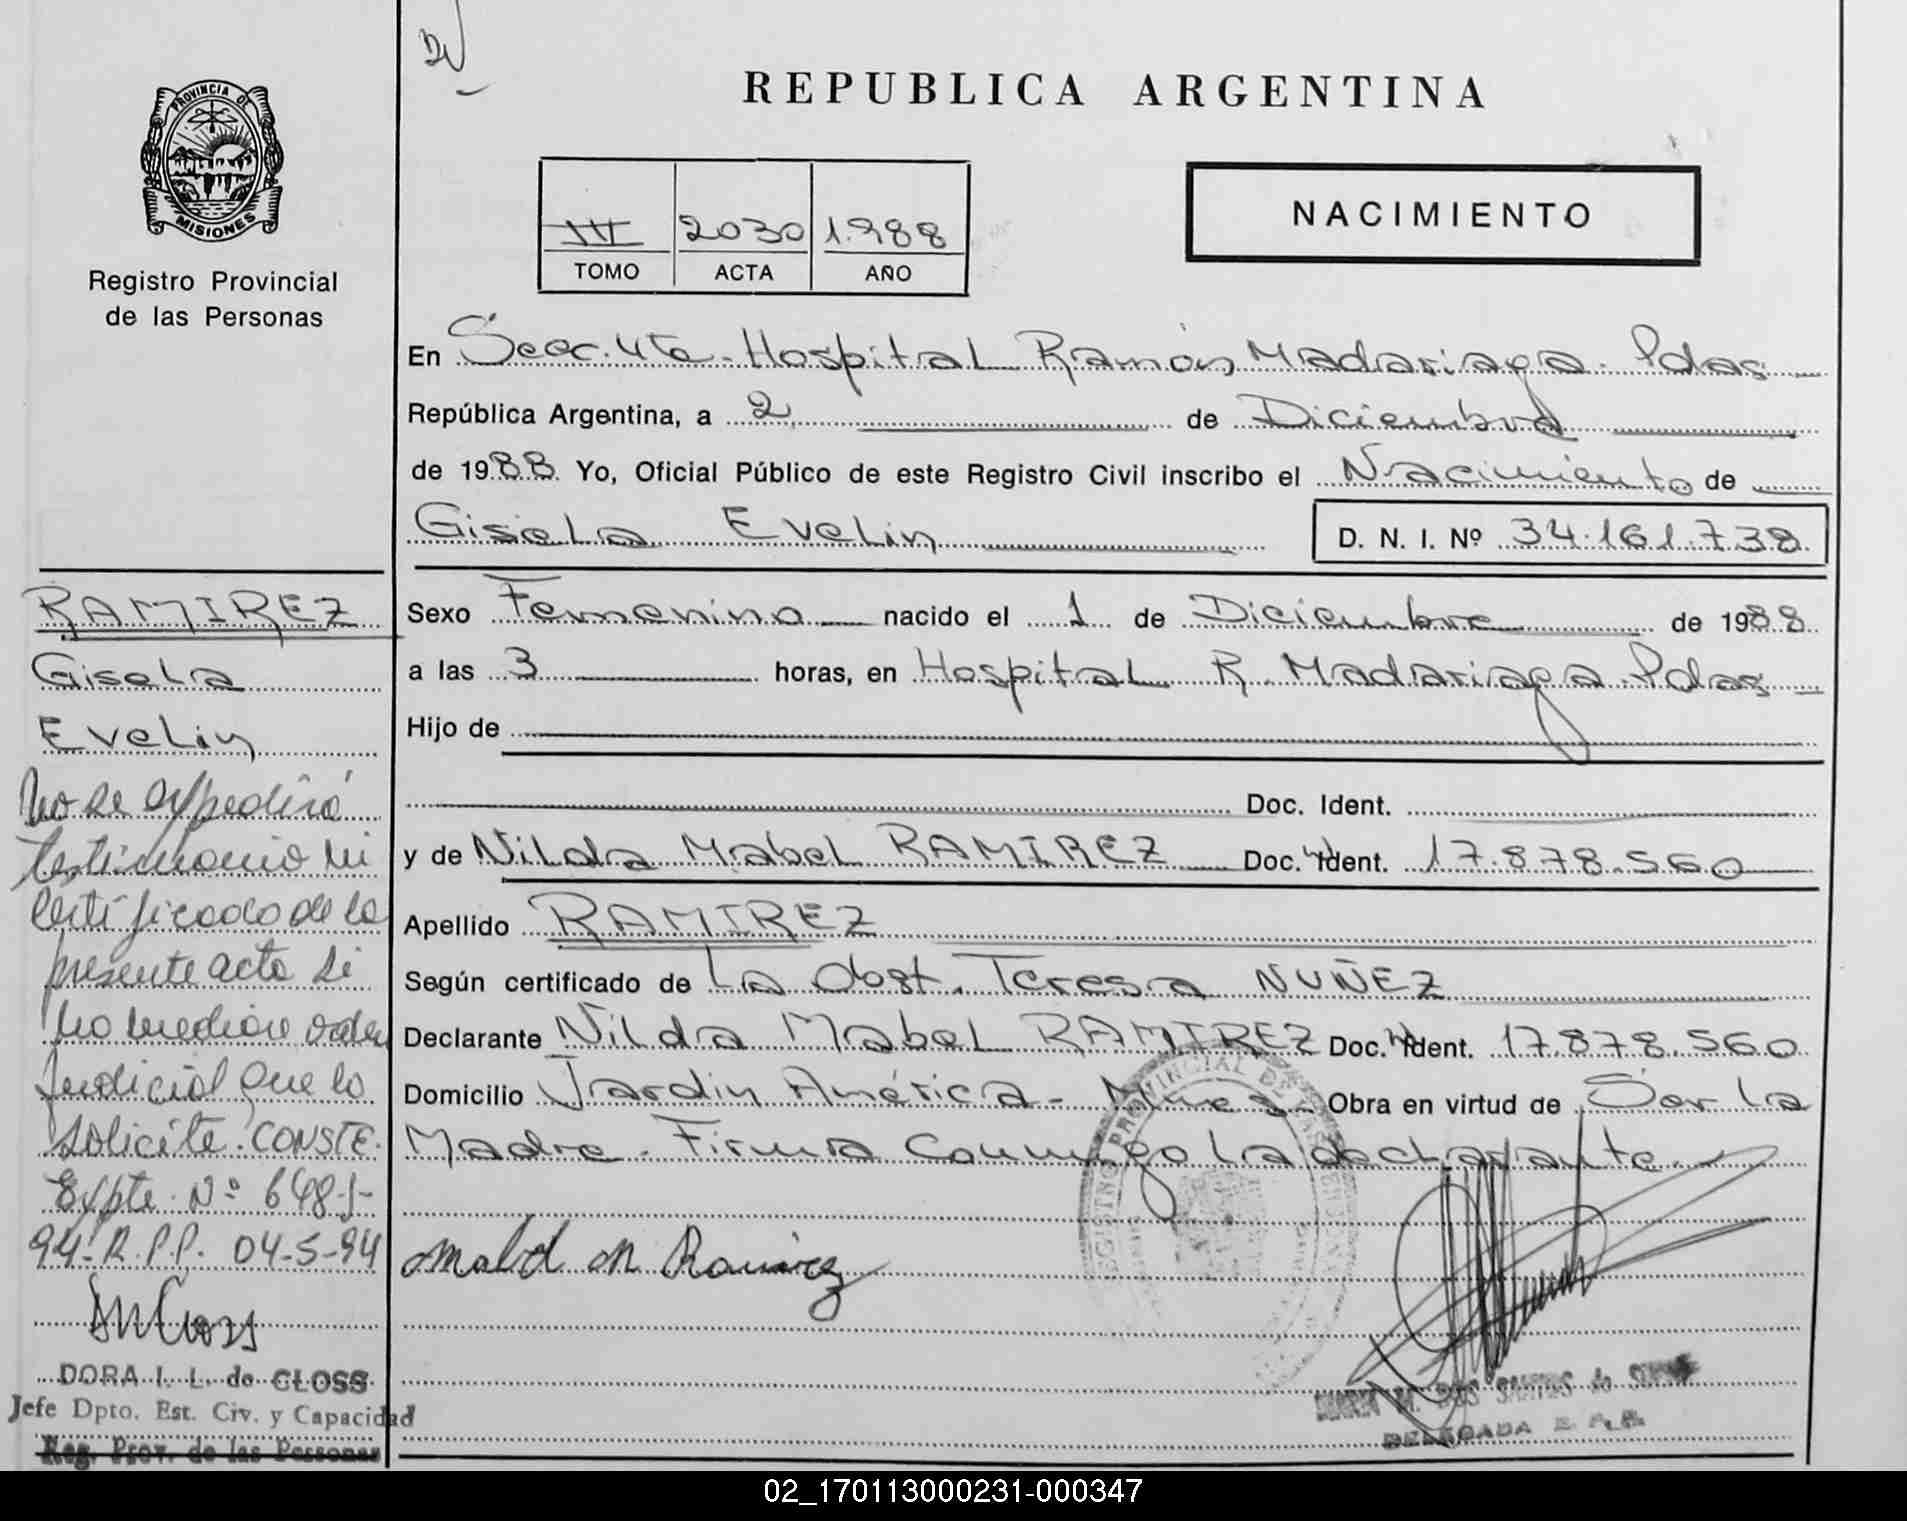 REPUBLICA ARGENTINA
PROVINCIA DE MISIONES
Registro Provincial
de las Personas
III 2030 1.988
TOMO ACTA AÑO
NACIMIENTO
En Secc. 4ta - Hospital Ramón Madariaga - Pdas
República Argentina, a 2 de Diciembre
de 1988 Yo, Oficial Público de este Registro Civil inscribo el Nacimiento de
Gisela Evelin D. N. I. Nº 34.161.738
Sexo Femenino nacido el 1 de Diciembre de 1988
a las 3 horas, en Hospital R. Madariaga - Pdas
Hijo de
Doc. Ident.
y de Nilda Mabel RAMIREZ Doc. Ident. 17.878.560
Apellido RAMIREZ
Según certificado de La Obst. Teresa NUÑEZ
Declarante Nilda Mabel RAMIREZ Doc. Ident. 17.878.560
Domicilio Jardin América - Mnes - Obra en virtud de Ser la
Madre - Firma Conmigo la declarante
Ramirez
DELEGADA
RAMIREZ
Gisela
Evelin
No se expedirá
testimonio ni
certificado de la
presente acta si
no mediare orden
Judicial que lo
solicite. CONSTE.
Expte. Nº 648-J-
94-R.P.P. 04-5-94
DORA I. L. de CLOSS
Jefe Dpto. Est. Civ. y Capacidad
Reg. Prov. de las Personas
02_170113000231-000347